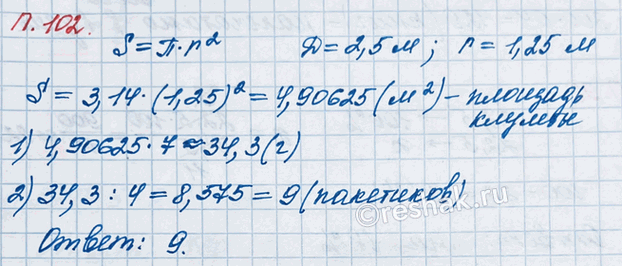 П.102.
S = П·r² Д = 2,5 м; r = 1,25 м
S = 3,14·(1,25)² = 4,90625 (м²) – площадь
клумбы
1) 4,90625·7 ≈ 34,3 (г)
2) 34,3 : 4 = 8,575 = 9 (пакетиков)
Ответ: 9.
©reshak.ru